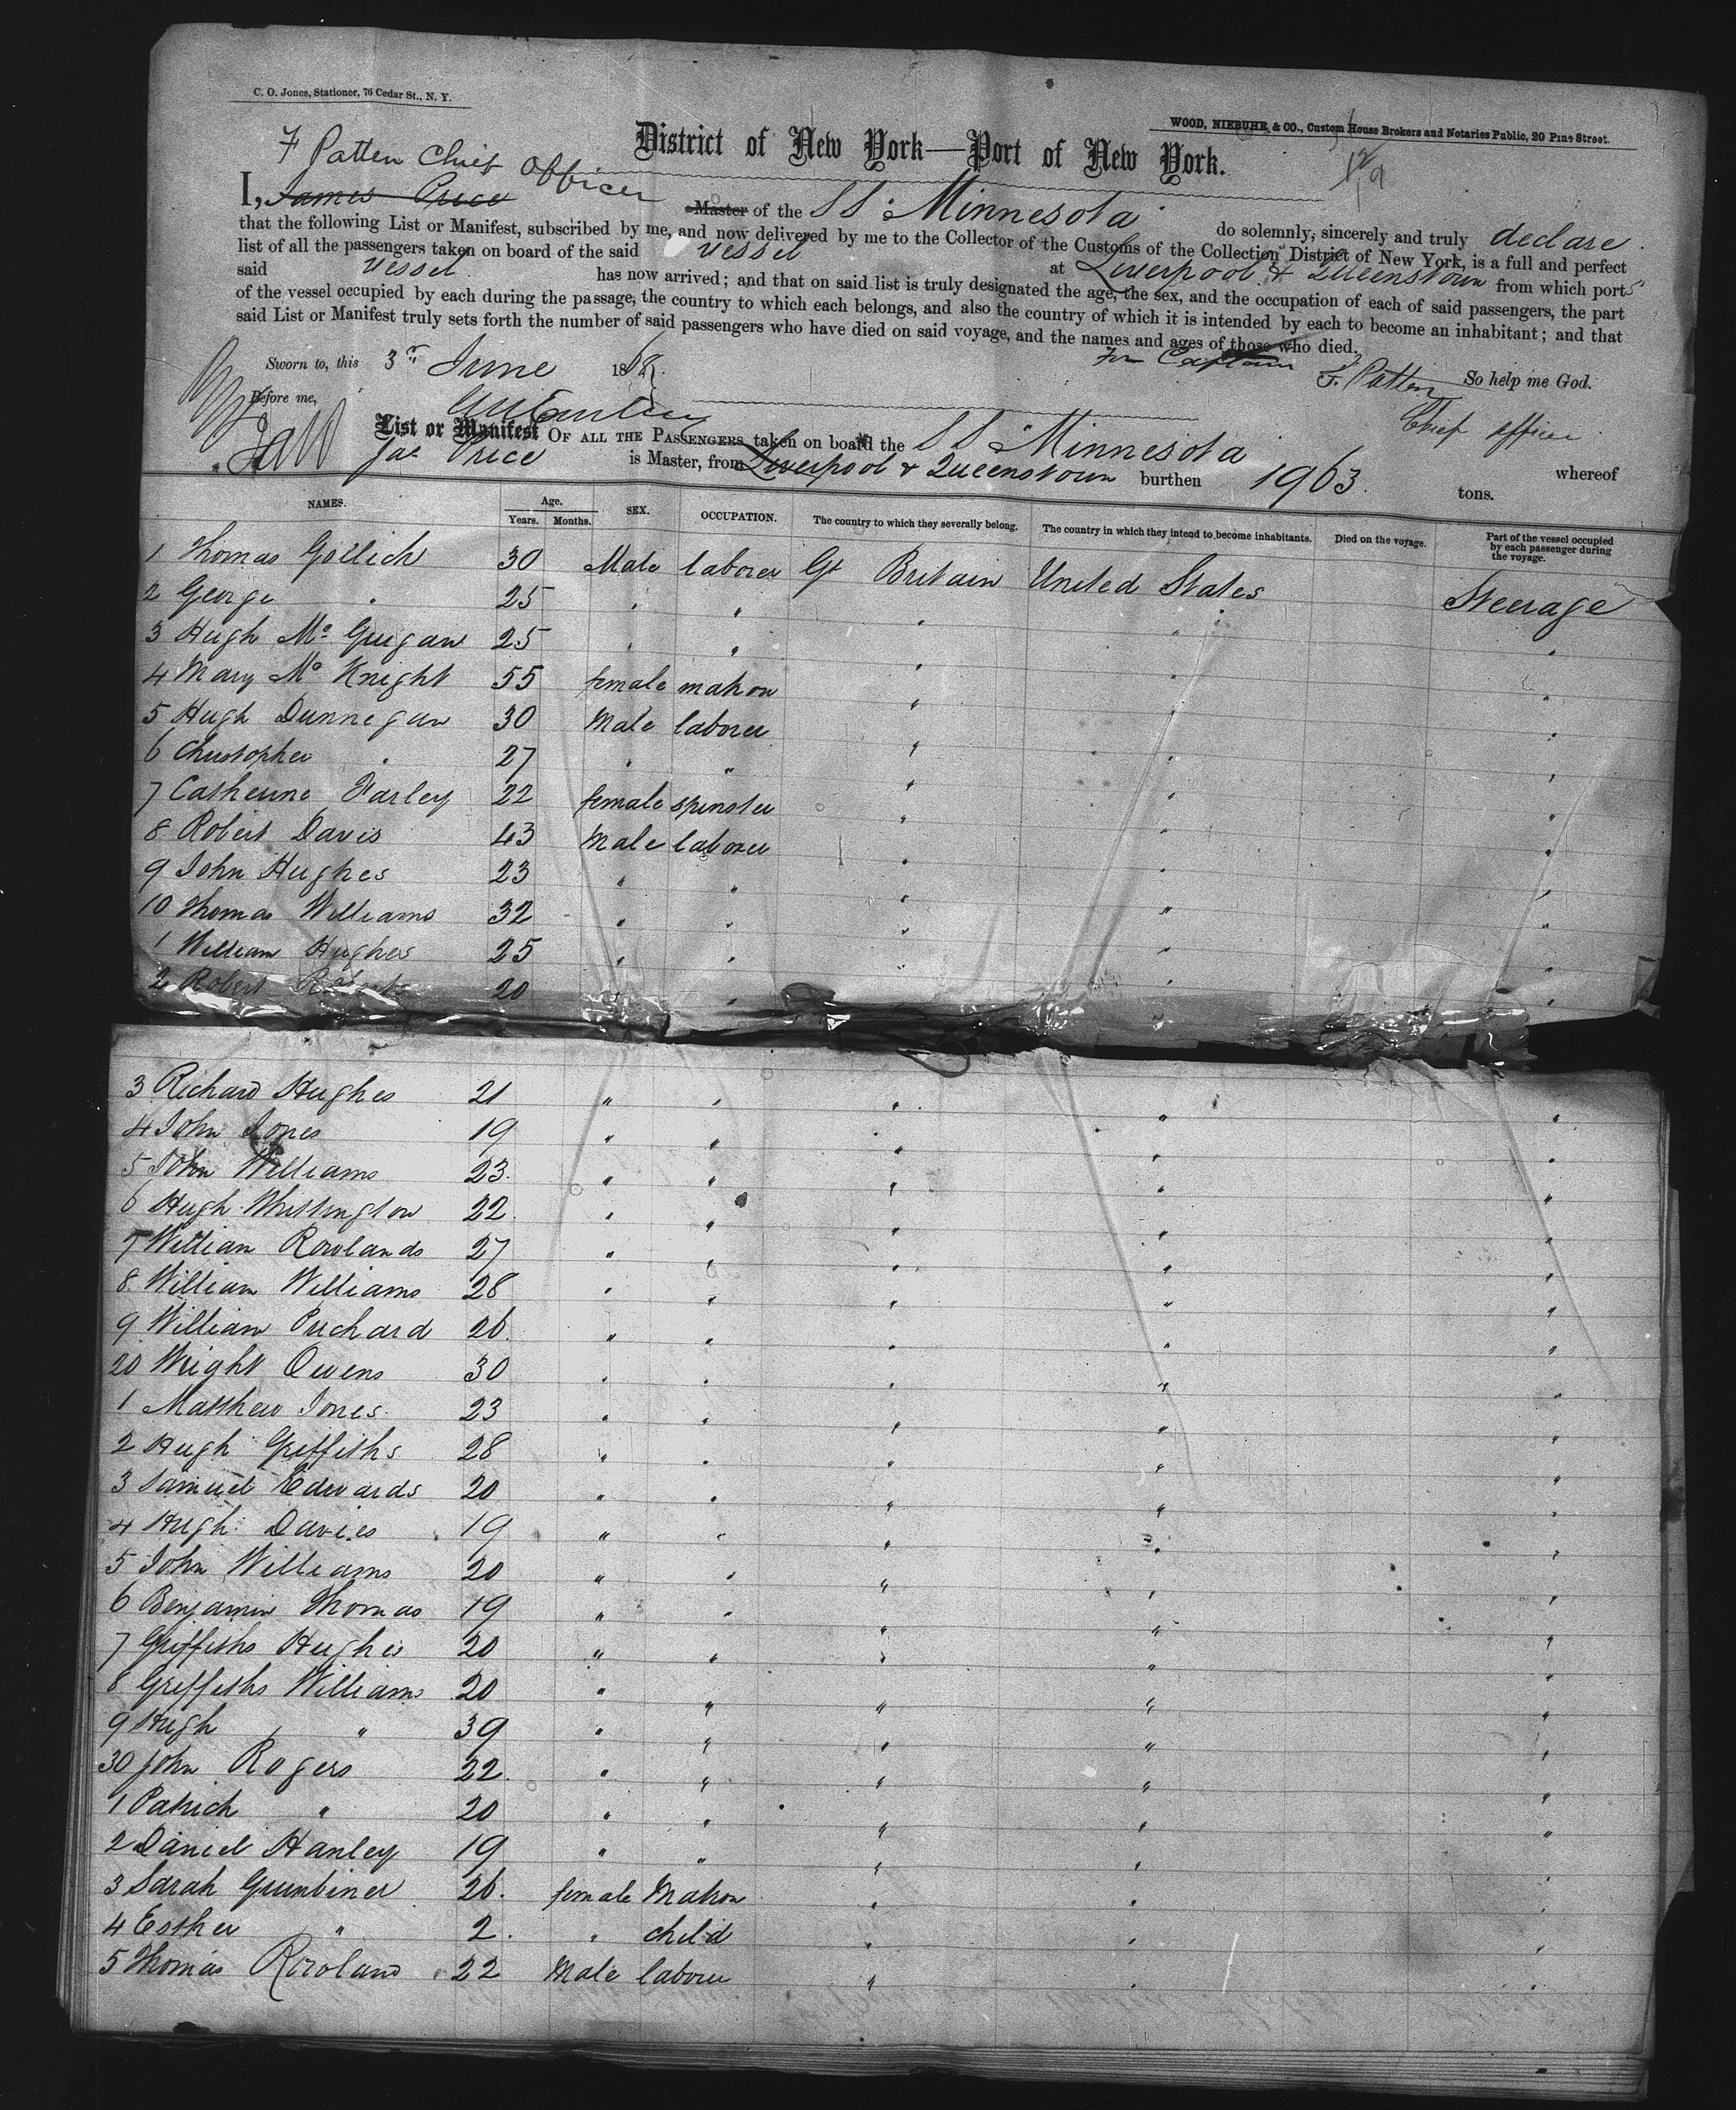 C. O. Jones, Stationer, 76 Cedar St., N. Y.
WOOD, NIEBUHR & CO., Custom House Brokers and Notaries Public, 20 Pine Street.
District of New York—Port of New York.
F Patten Chief Officer
I, James Price Master of the SS "Minnesota" do solemnly, sincerely and truly declare
that the following List or Manifest, subscribed by me, and now delivered by me to the Collector of the Customs of the Collection District of New York, is a full and perfect
list of all the passengers taken on board of the said Vessel at Liverpool & Queenstown from which ports
said Vessel has now arrived; and that on said list is truly designated the age, the sex, and the occupation of each of said passengers, the part
of the vessel occupied by each during the passage, the country to which each belongs, and also the country of which it is intended by each to become an inhabitant; and that
said List or Manifest truly sets forth the number of said passengers who have died on said voyage, and the names and ages of those who died.
Sworn to, this 3" June 186 For Captain F. Patten So help me God.
Before me, Chief officer
List or Manifest OF ALL THE PASSENGERS taken on board the SS "Minnesota" whereof
Jas Price is Master, from Liverpool & Queenstown burthen 1963 tons.
NAMES. Age. Years. Months. SEX. OCCUPATION. The country to which they severally belong. The country in which they intend to become inhabitants. Died on the voyage. Part of the vessel occupied by each passenger during the voyage.
1 Thomas 30 Male laborer Gt Britain United States Steerage
2 George " 25 " " " " "
3 Hugh Mc Guigan 25 " " " " "
4 Mary Mc Knight 55 female matron " " "
5 Hugh Dunnegan 30 Male laborer " " "
6 Christopher " 27 " " " " "
7 Catherine Farley 22 female spinster " " "
8 Robert Davis 43 Male laborer " " "
9 John Hughes 23 " " " " "
10 Thomas Williams 32 " " " " "
1 William Hughes 25 " " " " "
2 Robert 20 " " "
3 Richard Hughes 21 " " " " "
4 John Jones 19 " " " " "
5 John Williams 23 " " " " "
6 Hugh Whittington 22 " " " " "
7 William Rowlands 27 " " " " "
8 William Williams 28 " " " " "
9 William Prichard 26 " " " " "
20 Wright Owens 30 " " " " "
1 Matthew Jones 23 " " " " "
2 Hugh Griffiths 28 " " " " "
3 Samuel Edwards 20 " " " " "
4 Hugh Davies 19 " " " " "
5 John Williams 20 " " " " "
6 Benjamin Thomas 19 " " " " "
7 Griffiths Hughes 20 " " " " "
8 Griffiths Williams 20 " " " " "
9 Hugh " 39 " " " " "
30 John Rogers 22 " " " " "
1 Patrick " 20 " " " " "
2 Daniel Hanley 19 " " " " "
3 Sarah 26 female Matron " " "
4 Esther " 2 " child " " "
5 Thomas Rowland 22 Male laborer " " "